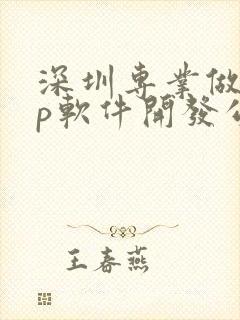 深圳専業做
p軟件開發公
王春燕